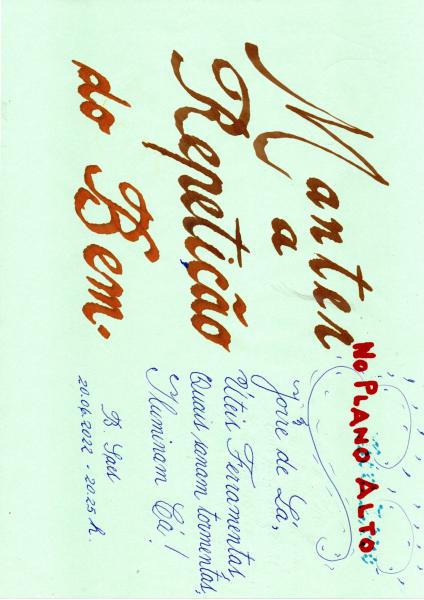 No PLANO ALTO
Manter
a
Repetição
do Bem.
Jorre de Lá,
Úteis Ferramentas,
Quais sanam tormentas,
Iluminam Cá!
20.06.2022 - 20:25 h.